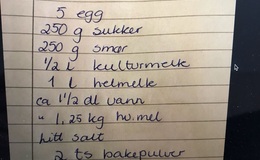 5 egg
250 g sukker
250 g smør
1/2 l kulturmelk
1 l helmelk
ca 1 1/2 dl vann
" 1,25 kg hv.mel
litt salt
2 ts bakepulver